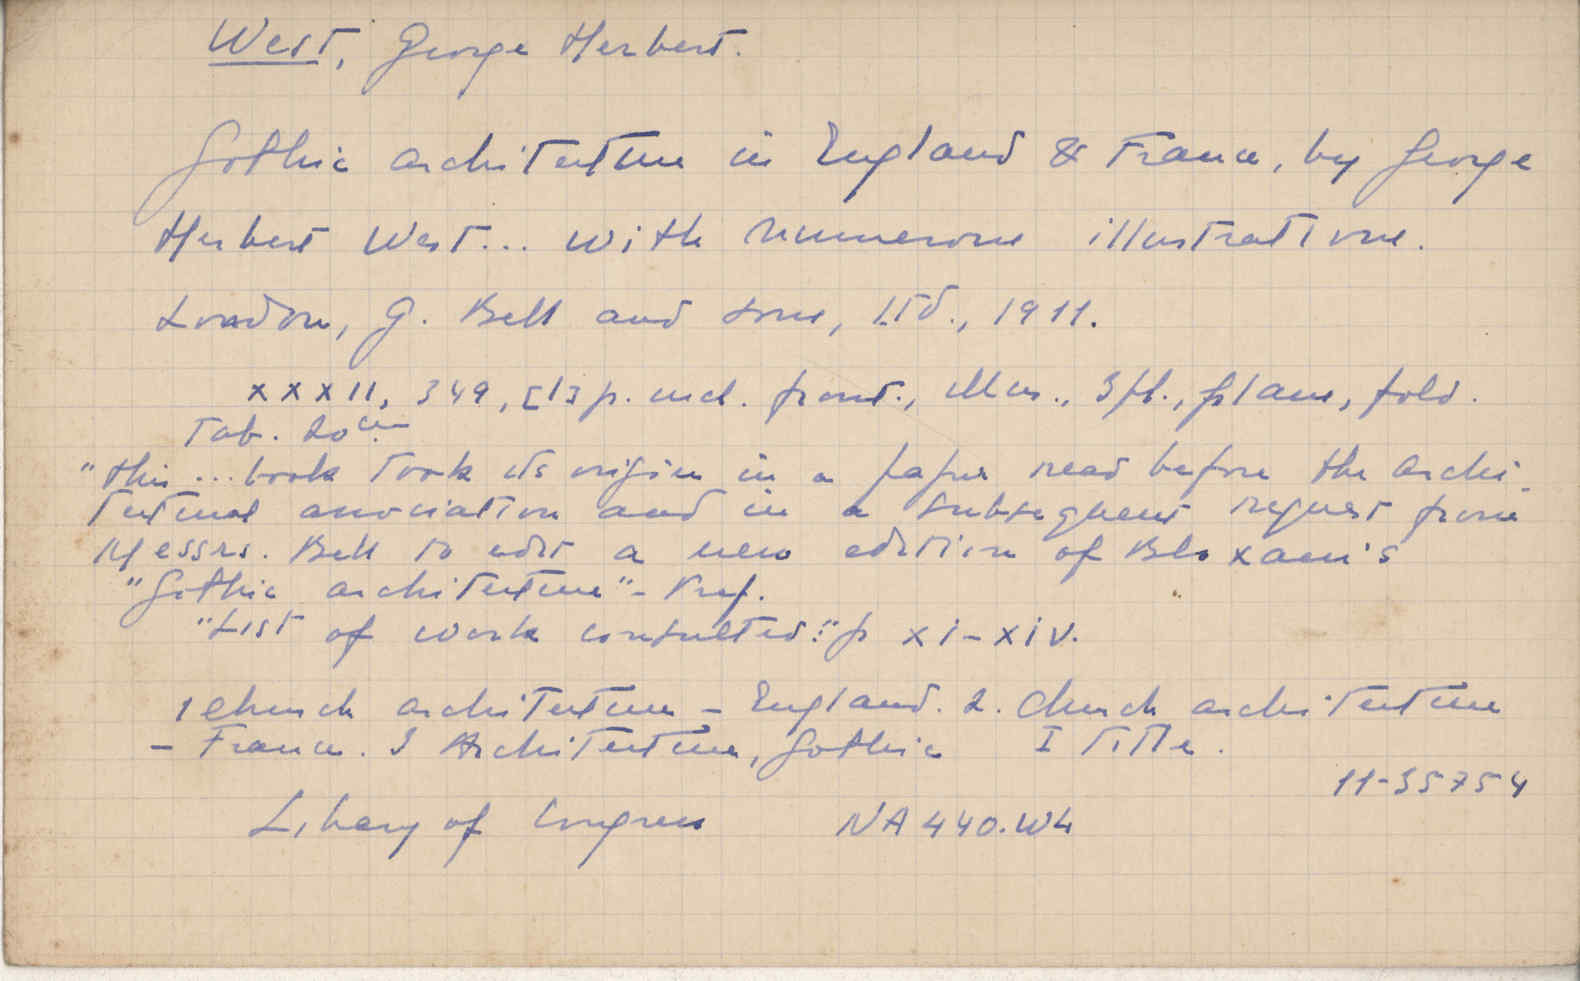 West, George Herbert.
Gothic architecture in England & France, by George
Herbert West... with numerous illustrations.
London, G. Bell and sons, LTD., 1911.
xxxII, 349, [1] p. incl. front., illus., 3 pl., plans, fold.
Tab. 20 cm
"this ... book took its origin in a paper read before the archi-
tectural association and in a subsequent request from
Messrs. Bell to edit a new edition of Bloxam's
"Gothic architecture" - Pref.
"List of work consulted:" p xi-xiv.
1 Church architecture - England. 2. Church architecture
- France. 3 Architecture, Gothic I Title.
11-35754
Library of Congress NA 440.W4